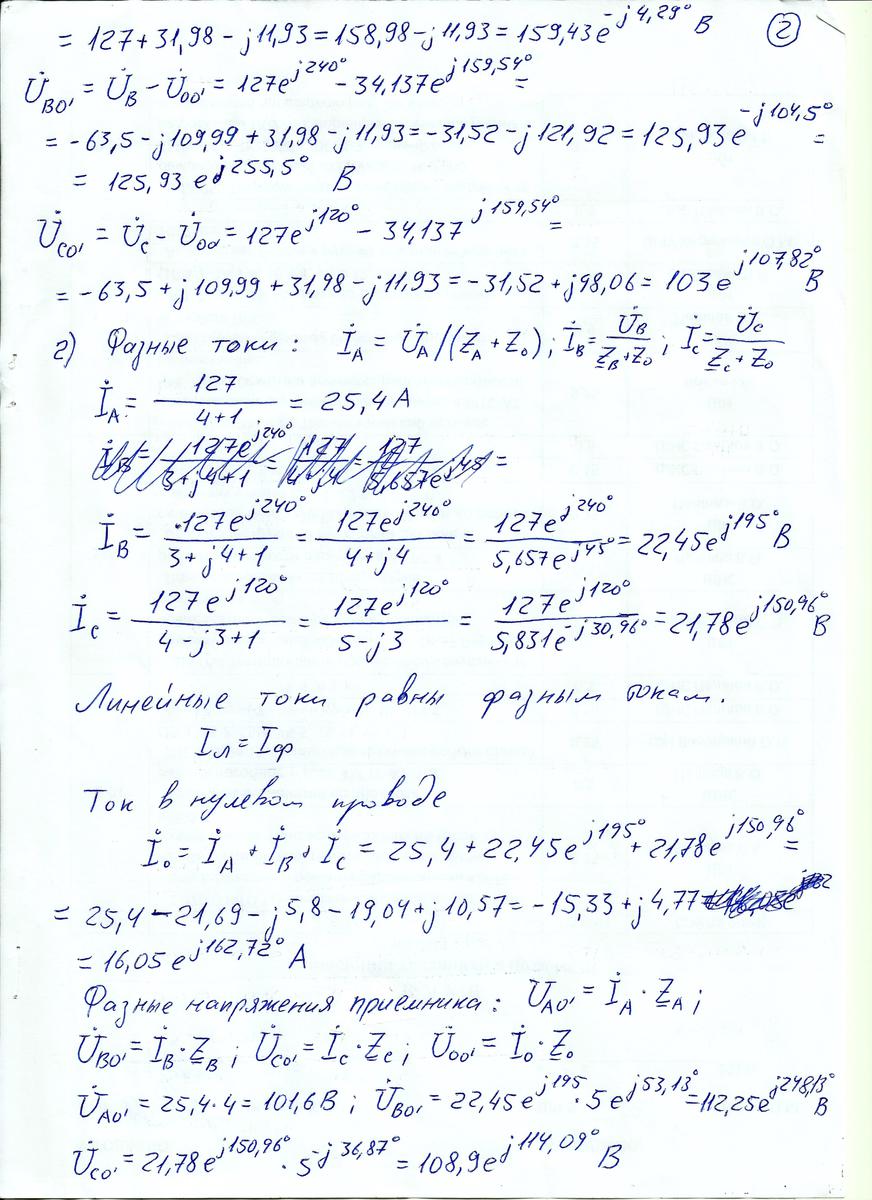 ②
= 127 + 31,98 - j11,93 = 158,98 - j11,93 = 159,43e^{-j4,29°} В
U̇_{BO'} = U̇_B - U̇_{OO'} = 127e^{j240°} - 34,137e^{j159,54°} =
= -63,5 - j109,99 + 31,98 - j11,93 = -31,52 - j121,92 = 125,93e^{-j104,5°} =
= 125,93e^{j255,5°} В
U̇_{CO'} = U̇_C - U̇_{OO'} = 127e^{j120°} - 34,137^{j159,54°} =
= -63,5 + j109,99 + 31,98 - j11,93 = -31,52 + j98,06 = 103e^{j107,82°} В
г) Фазные токи: İ_A = U̇_A/(Z_A + Z_0); İ_B = U̇_B/(Z_B + Z_0); İ_C = U̇_C/(Z_C + Z_0)
İ_A = 127/(4+1) = 25,4 А
İ_B = 127e^{j240°}/(3+j4+1) = 127e^{j240°}/(4+j4) = 127e^{j240°}/(5,657e^{j45°}) = 22,45e^{j195°} В
İ_C = 127e^{j120°}/(4-j3+1) = 127e^{j120°}/(5-j3) = 127e^{j120°}/(5,831e^{-j30,96°}) = 21,78e^{j150,96°} В
Линейные токи равны фазным токам.
I_Л = I_Ф
Ток в нулевом проводе
İ_0 = İ_A + İ_B + İ_C = 25,4 + 22,45e^{j195°} + 21,78e^{j150,96°} =
= 25,4 - 21,69 - j5,8 - 19,04 + j10,57 = -15,33 + j4,77
= 16,05e^{j162,72°} А
Фазные напряжения приемника: U̇_{AO'} = İ_A · Z_A;
U̇_{BO'} = İ_B · Z_B; U̇_{CO'} = İ_C · Z_C; U̇_{OO'} = İ_0 · Z_0
U̇_{AO'} = 25,4 · 4 = 101,6 В; U̇_{BO'} = 22,45e^{j195} · 5e^{j53,13°} = 112,25e^{j248,13°} В
U̇_{CO'} = 21,78e^{j150,96°} · 5^{-j36,87°} = 108,9e^{j114,09°} В